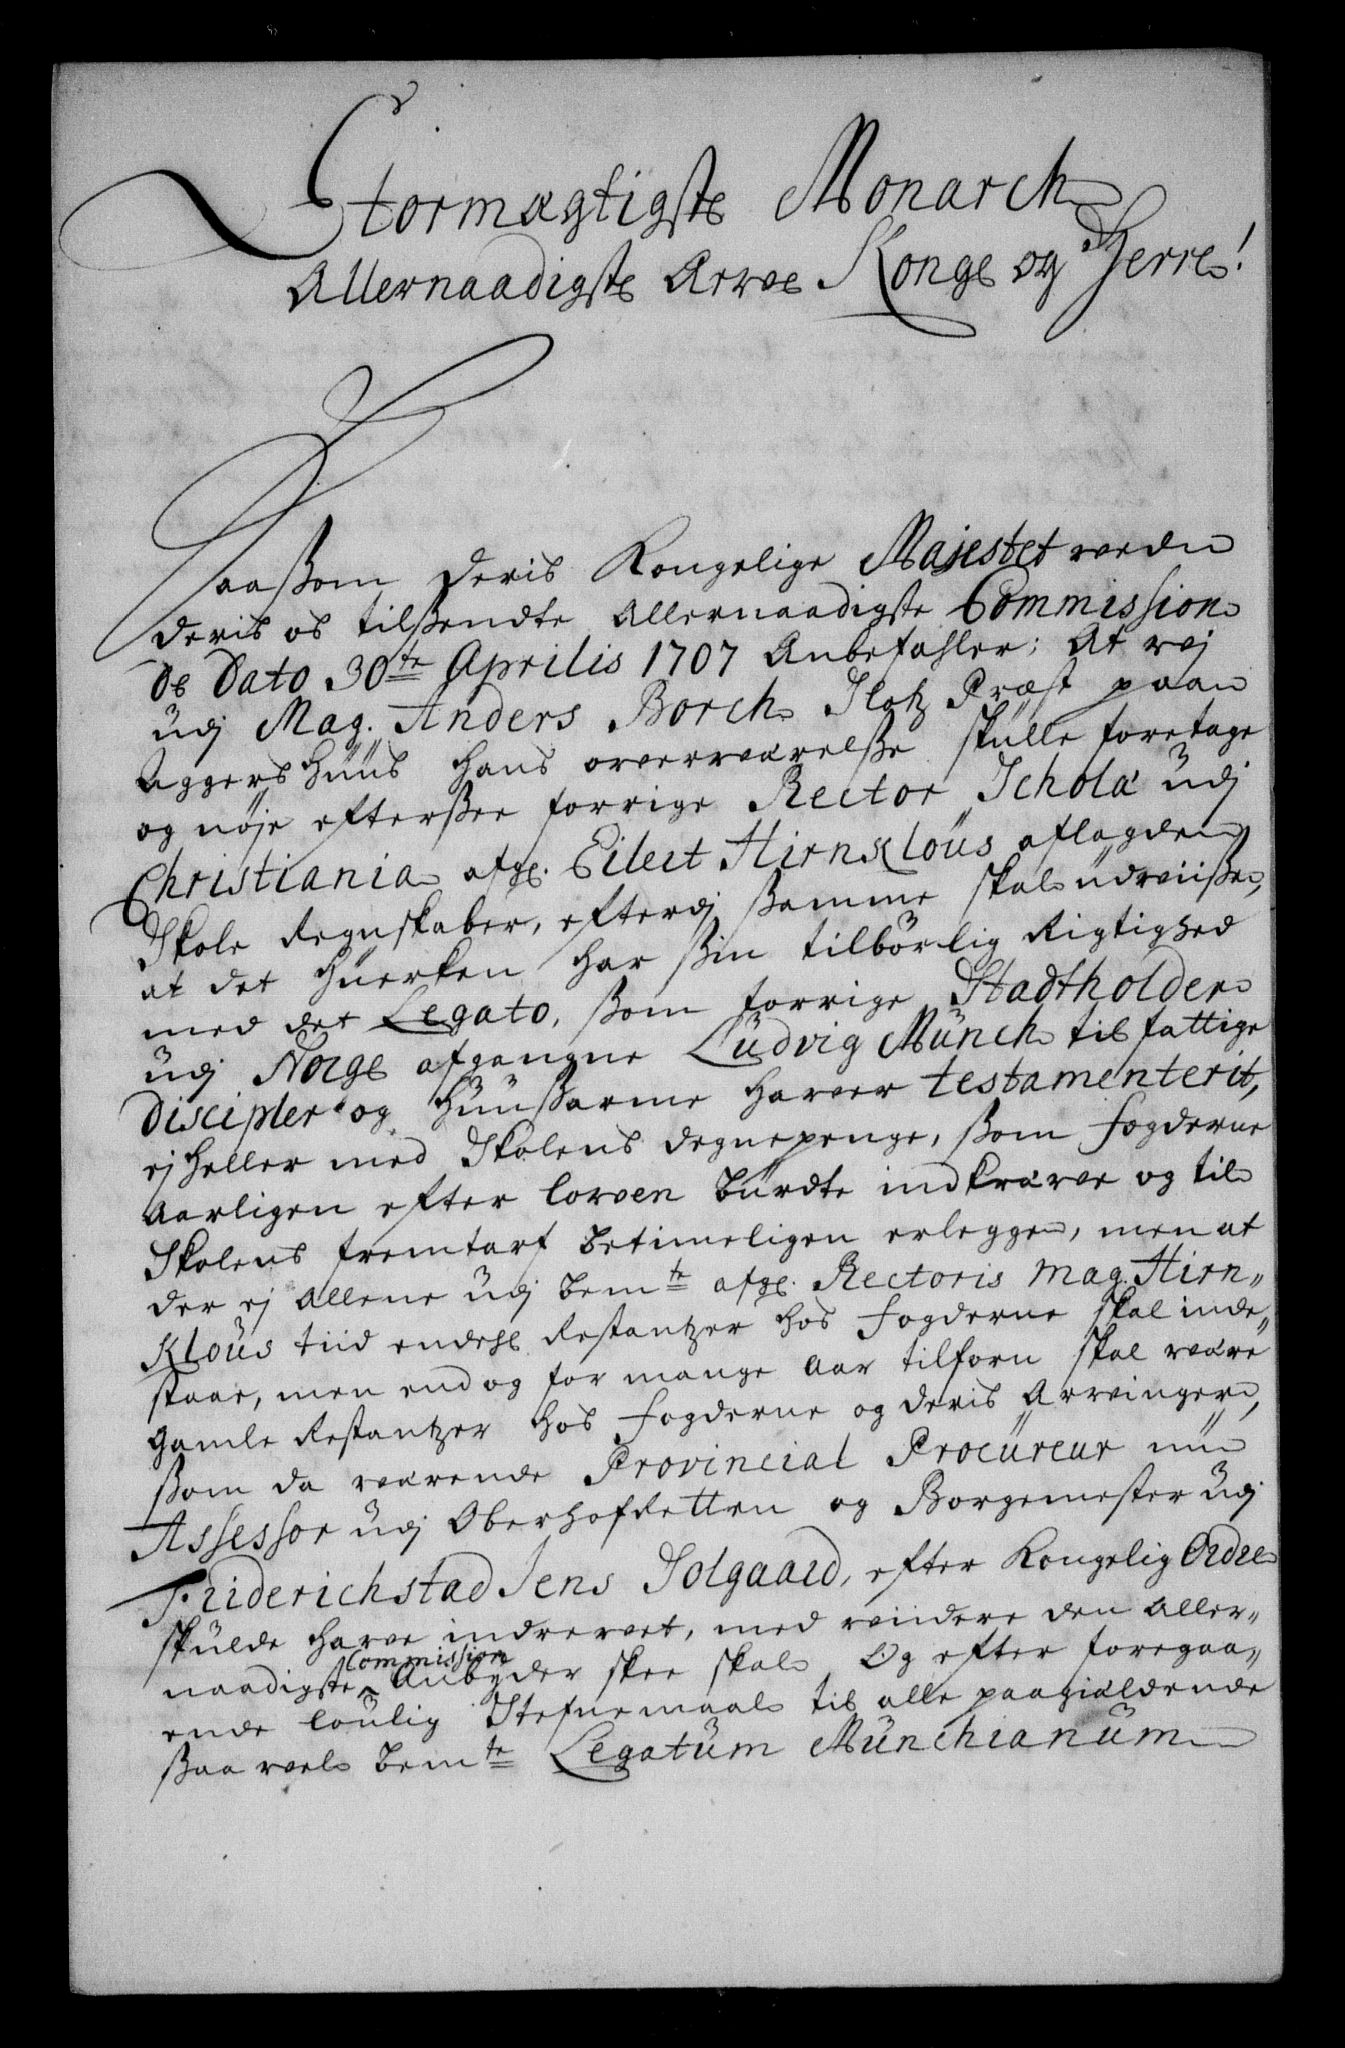 Stormægtigste Monarch
Allernaadigste Arve Konge og Herre!
Saassom Deris Kongelige Majestet veden
deris os tilsendte Allernaadigste Commission
de Dato 30te Aprilis 1707 Anbefahler; At vej
udj Mag. Anders Borch Slotz Præst paa
Aggershuus hans overværelsse skulle foretage
og nøje efterssee forrige Rector Scholæ udj
Christiania afge. Eilert Hirnklous aflagde
Skole Regnskaber, efterdj ssamme skal udviisse,
at det huerken har ssin tilbørlig Rigtighed
med det Legato, ssom forrige Stadtholder
udj Norge afgangne Ludvig Munch til fattige
Discipler og huussarme haver testamenterit,
ej heller med Skolens degnepenge, ssom fogderne
Aarligen efter loven burdte indkræve og til
Skolens fremtarf betimeligen erlegge, men at
der ej Allene udj bemte afge. Rectoris Mag. Hirn„
klous tiid endehl Restantzer hos fogderne skal inde„
staae, men end og for mange Aar tilforn skal være
gamle Restantzer hos fogderne og deris Arvinger,
ssom da værende Provincial Procureur nu
Assessor udj Oberhofretten og Borgemester udj
Friderichstad Jens Solgaard, efter Kongelig Ordre
skulde have indrevet, med viidere den Aller„
naadigste Commission Anbyder skee skal, Og efter foregaa„
ende loulig Stefnemaal til alle paagiældende
ssaa vel bemte Legatum Munchianum